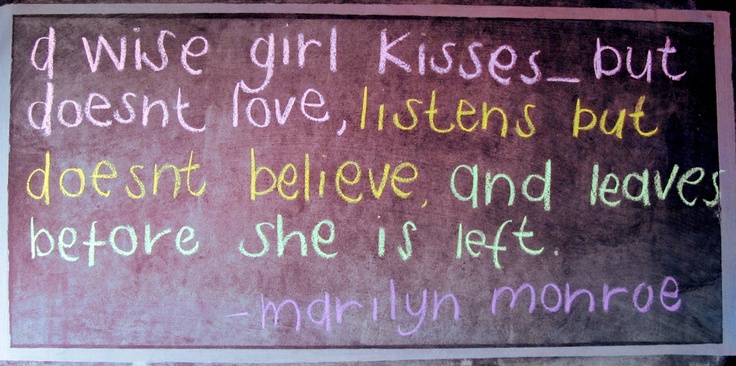 a wise girl kisses_but
doesnt love, listens but
doesnt believe, and leaves
before she is left.
-marilyn monroe